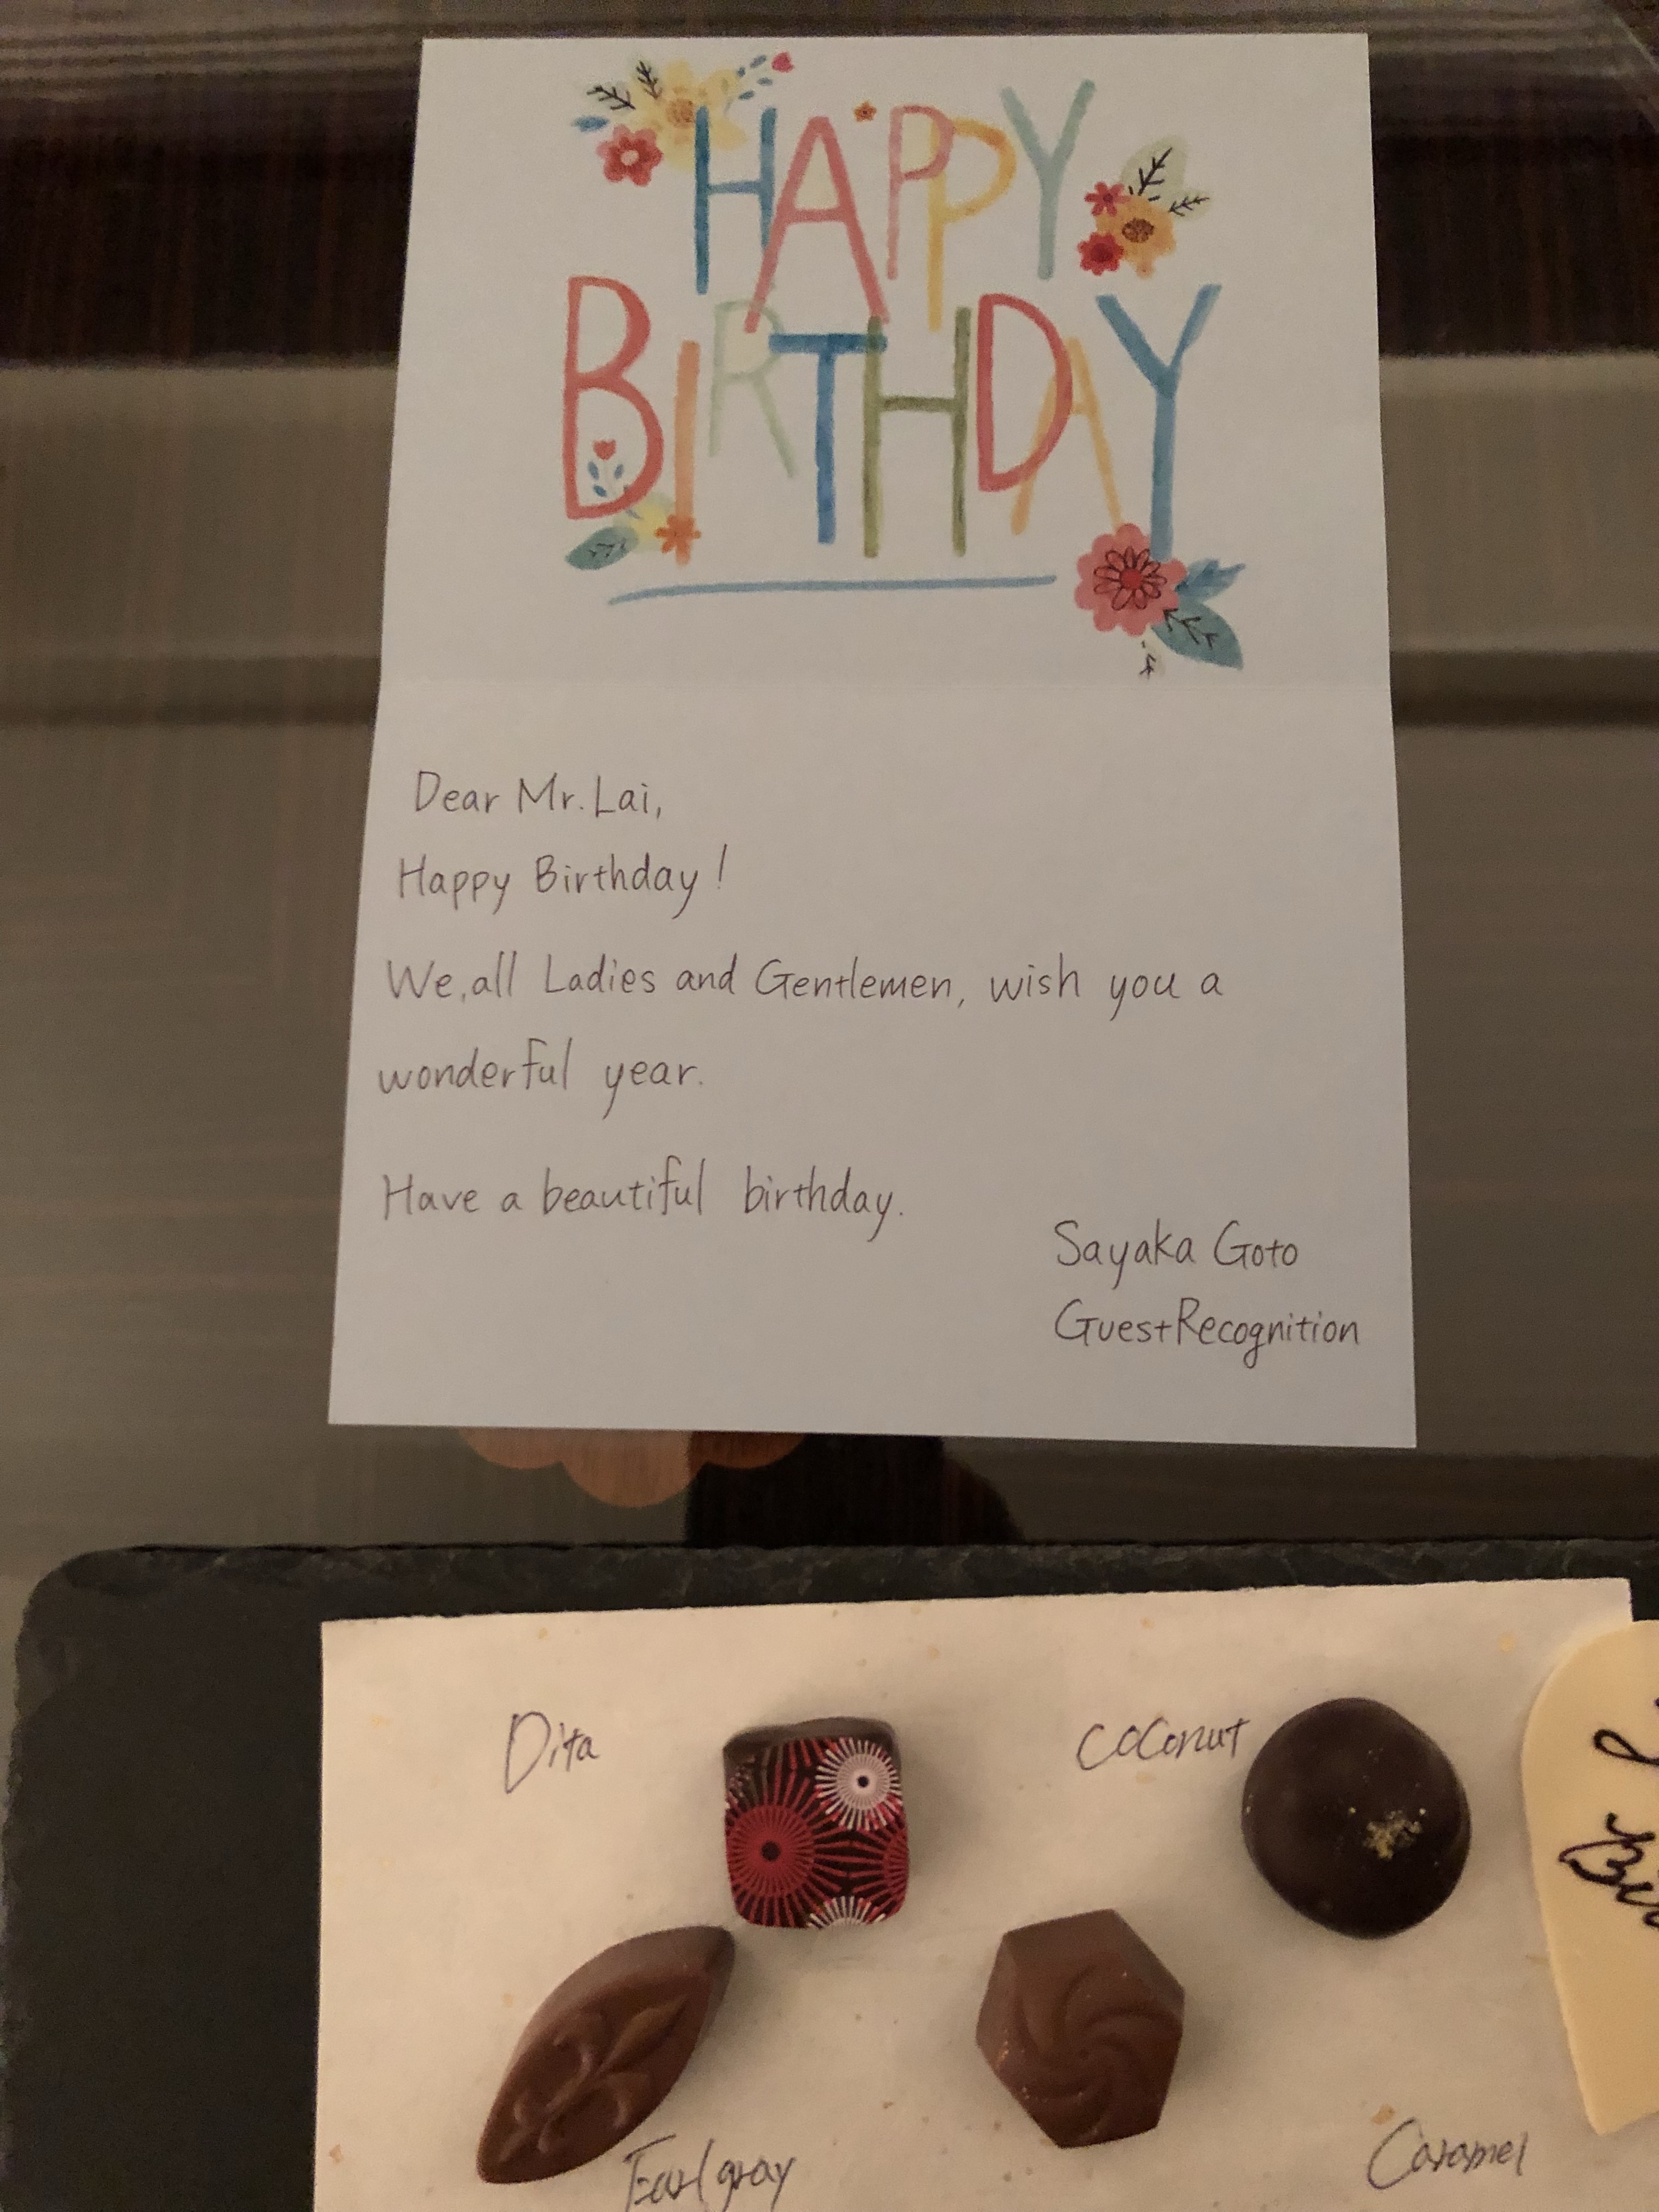 HAPPY
BIRTHDAY
Dear Mr. Lai,
Happy Birthday!
We, all Ladies and Gentlemen, wish you a
wonderful year.
Have a beautiful birthday.
Sayaka Goto
Guest Recognition
Dita
Coconut
Earl gray
Caramel